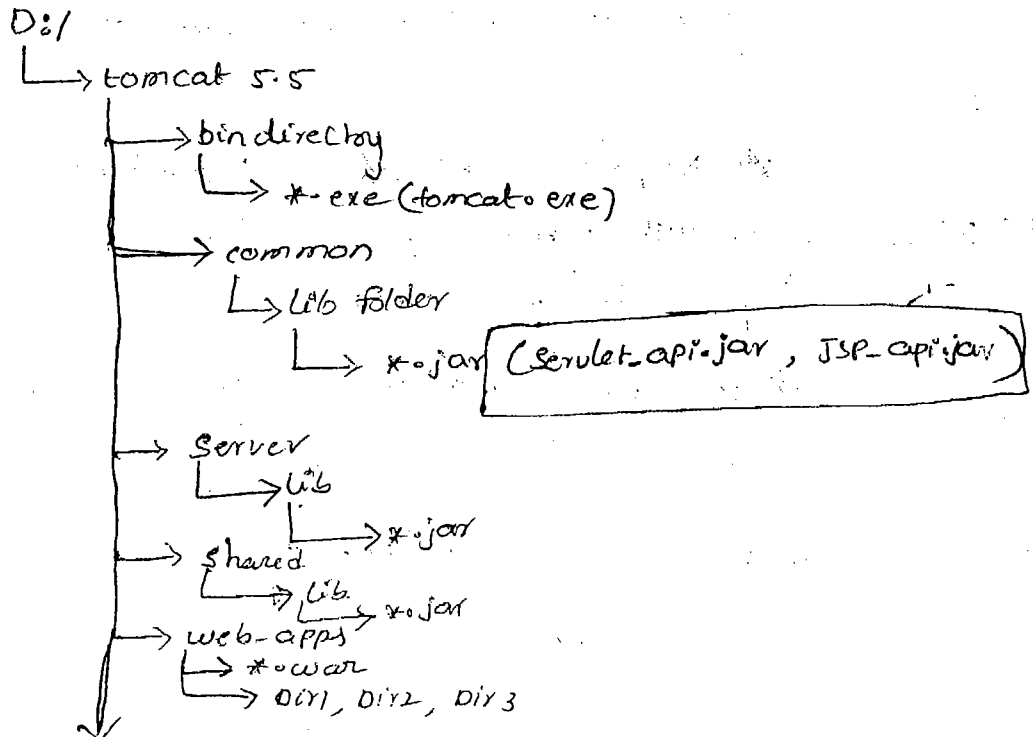 D:/
tomcat 5.5
bin directory
*.exe (tomcat.exe)
common
lib folder
*.jar (Servlet_api.jar, JSP_api.jar)
Server
lib
*.jar
shared
lib
*.jar
web-apps
*.war
Dir1, Dir2, Dir3